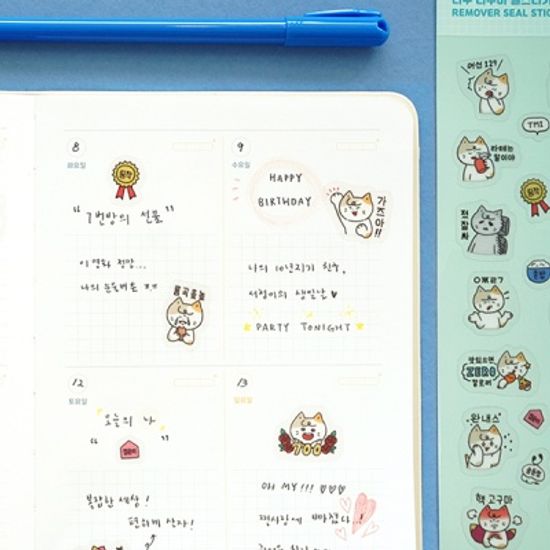 REMOVER SEAL STIC
8
화요일
"7번방의 선물"
이 영화 정말...
나의 눈물버튼 ㅠㅠ
9
수요일
HAPPY
BIRTHDAY
가즈아!!
나의 10년지기 친구,
서정이의 생일날♥
PARTY TONIGHT
12
토요일
오늘의 나
" "
복잡한 세상!
편하게 살자!
13
일요일
100
OH MY!!! ♡♡♡
TMI
라떼는
말이야
맛있으면
ZERO
칼로리
완내스
핵고구마